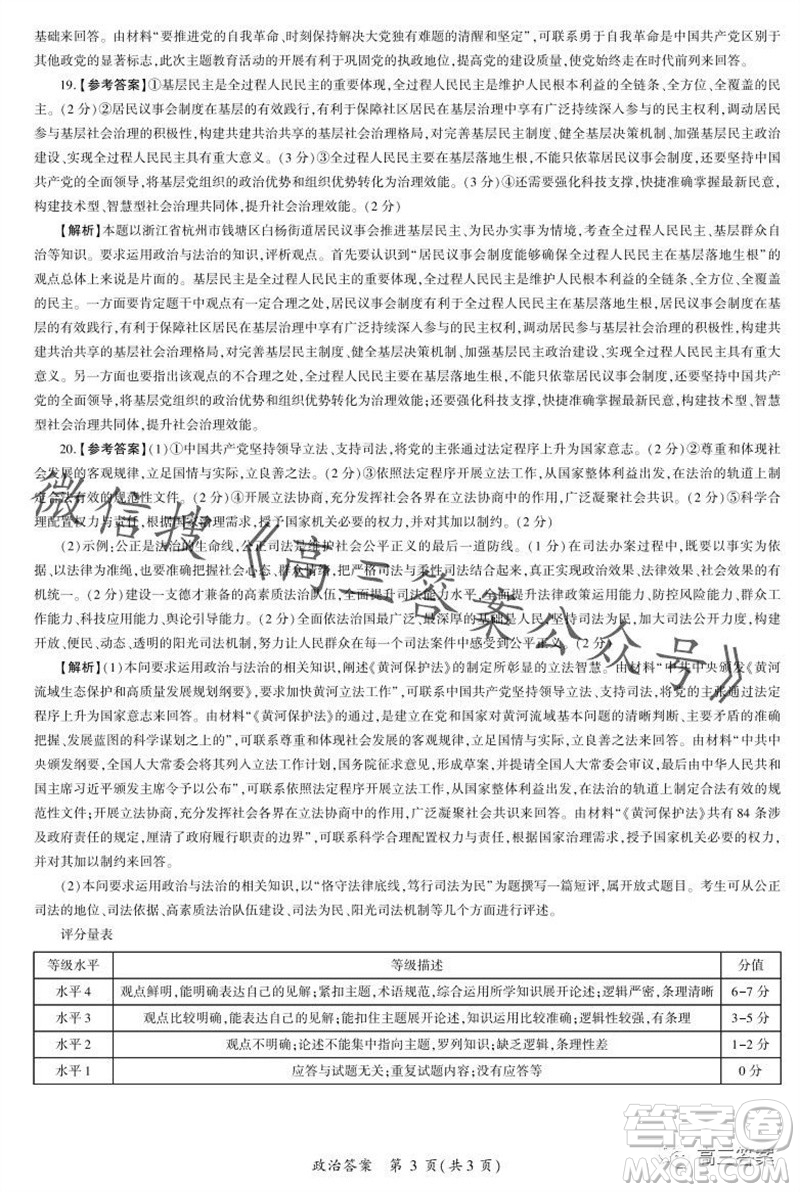 基础来回答。由材料“要推进党的自我革命、时刻保持解决大党独有难题的清醒和坚定”,可联系勇于自我革命是中国共产党区别于
其他政党的显著标志,此次主题教育活动的开展有利于巩固党的执政地位,提高党的建设质量,确保党始终走在时代前列来回答。
19.【参考答案】①基层民主是全过程人民民主的重要体现,全过程人民民主是维护人民根本利益的全链条、全方位、全覆盖的民
主。(2分)②居民议事会制度在基层的有效践行,有利于保障社区居民在基层治理中享有广泛持续深入参与的民主权利,调动居民
参与基层社会治理的积极性,构建共建共治共享的基层社会治理格局,对完善基层民主制度、健全基层决策机制、加强基层民主政治
建设、实现全过程人民民主具有重大意义。(3分)③全过程人民民主在基层落地生根,需要基层治理制度的有效运行,需要坚持中国
共产党的全面领导,将基层党组织的政治优势和组织优势转化为治理效能。(2分)④还需要强化科技支撑,快捷准确掌握最新民意,
构建技术型、智慧型社会治理共同体,提升社会治理效能。(2分)
【解析】本题以浙江省杭州市钱塘区白杨街道居民议事会推进基层民主实事为情境,考查全过程人民民主、基层民主、基层群众自
治等知识。要求运用政治与法治的知识,评析观点。首先要认识到“居民议事会制度能够助力全过程人民民主在基层落地生根”的
观点总体上来说是片面的。基层民主是全过程人民民主的重要体现,全过程人民民主是维护人民根本利益的全链条、全方位、全覆盖
的民主。一方面要肯定题干中观点有一定合理之处,居民议事会制度有利于全过程人民民主在基层落地生根,居民议事会制度在基
层的有效践行,有利于保障社区居民在基层治理中享有广泛持续深入参与的民主权利,调动居民参与基层社会治理的积极性,构建共
建共治共享的基层社会治理格局,对完善基层民主制度、健全基层决策机制、加强基层民主政治建设、实现全过程人民民主具有重大
意义。另一方面要指出该观点的不合理之处,全过程人民民主在基层落地生根,需要基层治理制度的有效运行,需要坚持中国共产党
的全面领导,将基层党组织的政治优势和组织优势转化为治理效能。还需要强化科技支撑,快捷准确掌握最新民意,构建技术型、智慧
型社会治理共同体,提升社会治理效能。
20.【参考答案】(1)①中国共产党坚持领导立法、支持司法,将党的主张通过法定程序上升为国家意志。(2分)②尊重和体现社
会发展的客观规律,立足国情与实际,立良善之法。(2分)③依照法定程序开展立法工作,从国家整体利益出发,在法治的轨道上制
定合法有效的规范性文件。(2分)④开展立法协商,支持和发挥社会各界在立法协商中的作用,广泛凝聚社会共识。(2分)⑤科学合
理配置权力与责任,根据国家治理需求,授予国家机关必要的权力,并对其加以制约。(2分)
(2)示例:公正是法治的生命线,公正司法是维护社会公平正义的最后一道防线。(1分)在司法办案过程中,既要以事实为依据、
以法律为准绳,也要把握社会心态、群众情绪,把严格司法与柔性司法结合起来,真正实现政治效果、法律效果、社会效果的有
机统一。(2分)建设一支德才兼备的高素质法治队伍,全面提升司法能力水平,不断提升法律政策运用能力、防控风险能力、群众工
作能力、科技应用能力、舆论引导能力。(2分)以最广泛、最深厚的群众基础创造国家法治最广泛、最深厚的基础,加大司法公开力度,构建
开放、便民、动态、透明的阳光司法机制,努力让人民群众在每一个司法案件中感受到公平正义。(2分)
【解析】(1)本问要求运用政治与法治的相关知识,阐述《黄河保护法》的制定所彰显的立法智慧。由材料“中共中央颁发《黄河
流域生态保护和高质量发展规划纲要》,要求加快黄河立法工作”,可联系中国共产党坚持领导立法、支持司法,将党的主张通过法定
程序上升为国家意志来回答。由材料“《黄河保护法》的通过,是建立在党和国家对黄河流域基本问题的清晰判断、主要矛盾的准确
把握、发展蓝图的科学谋划之上的”,可联系尊重和体现社会发展的客观规律,立足国情与实际,立良善之法来回答。由材料“中共中
央颁发纲要,全国人大常委会将其纳入立法工作计划,国务院征求意见,形成草案,并提请全国人大常委会审议,最后由中华人民共和
国主席习近平发布主席令予以公布”,可联系依照法定程序开展立法工作,从国家整体利益出发,在法治的轨道上制定合法有效的规
范性文件;支持和发挥社会各界在立法协商中的作用,广泛凝聚社会共识来回答。由材料“《黄河保护法》共有 84 条涉
及政府责任的规定,厘清了政府履行职责的边界”,可联系科学合理配置权力与责任,根据国家治理需求,授予国家机关必要的权力,
并对其加以制约来回答。
(2)本问要求运用政治与法治的相关知识,以“恪守法律底线,笃行司法为民”为题撰写一篇短评,属开放式题目。考生可从公正
司法的地位、司法依据、高素质法治队伍建设、阳光司法机制等几个方面进行评述。
评分量表
等级水平 等级描述 分值
水平 4 观点鲜明,能明确表达自己的见解;紧扣主题,术语规范,综合运用所学知识展开论述;逻辑严密,条理清晰 6-7 分
水平 3 观点比较明确,能表达自己的见解;能扣住主题展开论述,知识运用比较准确;逻辑性较强,有条理 3-5 分
水平 2 观点不明确;论述不能集中指向主题,罗列知识;缺乏逻辑,条理性差 1-2 分
水平 1 应答与试题无关;重复试题内容;没有应答等 0 分
政治答案 第 3 页(共 3 页)
微信搜《高三答案公众号》
答案圈
高三答案
MXQE.COM